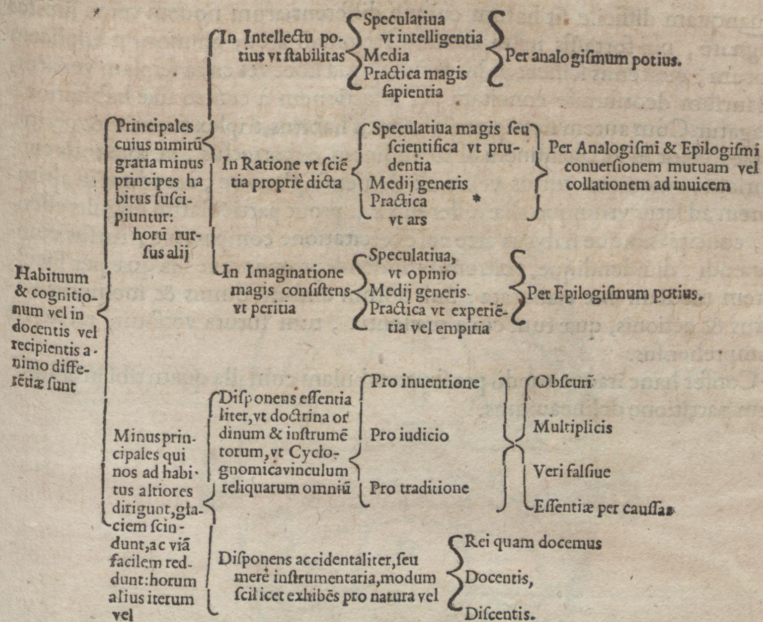 Habituum
& cognitio-
num vel in
docentis vel
recipientis a-
nimo diffe-
rẽtiæ sunt
Principales
cuius nimirũ
gratia minus
principes ha
bitus susci-
piuntur:
horũ rur-
sus alij
In Intellectu po-
tius vt stabilitas
Speculatiua
vt intelligentia
Media
Practica magis
sapientia
Per analogismum potius.
In Ratione vt sciẽ
tia propriè dicta
Speculatiua magis seu
scientifica vt pru-
dentia
Medij generis
Practica
vt ars
Per Analogismi & Epilogismi
conuersionem mutuam vel
collationem ad inuicem
In Imaginatione
magis consistens
vt peritia
Speculatiua,
vt opinio
Medij generis
Practica vt experiẽ-
tia vel empiria
Per Epilogismum potius.
Minus prin-
cipales qui
nos ad habi-
tus altiores
dirigunt, gla-
ciem scin-
dunt, ac viã
facilem red-
dunt: horum
alius iterum
vel
Disponens essentia
liter, vt doctrina or
dinum & instrumẽ
torum, vt Cyclo-
gnomica vinculum
reliquarum omniũ
Pro inuentione
Pro iudicio
Pro traditione
Obscuri
Multiplicis
Veri falsiue
Essentiæ per caussas
Disponens accidentaliter, seu
merè instrumentaria, modum
scilicet exhibẽs pro natura vel
Rei quam docemus
Docentis,
Discentis.